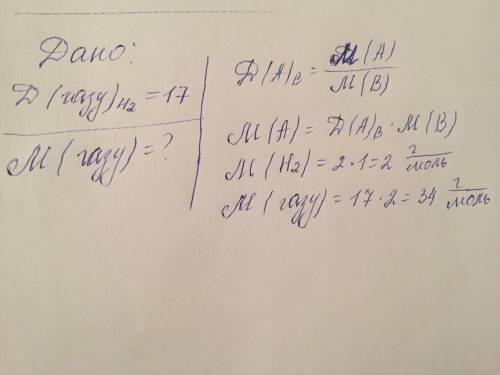 Дано:
D(газу)H₂ = 17
M(газу) = ?
D(A)B = M(A)/M(B)
M(A) = D(A)B · M(B)
M(H₂) = 2·1 = 2 г/моль
M(газу) = 17·2 = 34 г/моль